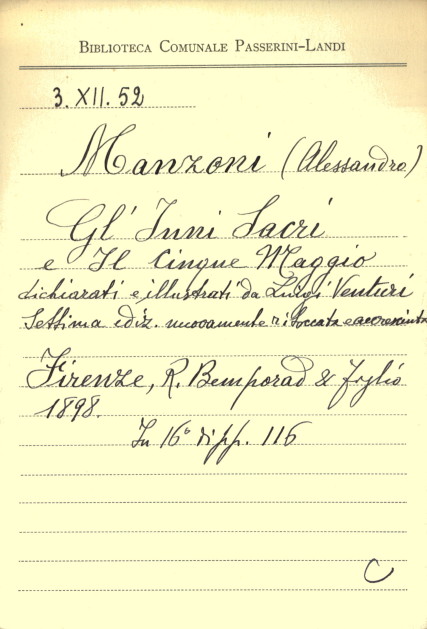 BIBLIOTECA COMUNALE PASSERINI-LANDI
3. XII. 52
Manzoni (Alessandro)
Gl' Inni Sacri
e Il Cinque Maggio
dichiarati e illustrati da Luigi Venturi
Settima ediz. nuovamente ritoccata e accresciuta
Firenze, R. Bemporad & figlio
1898.
In 16° di pp. 116
C